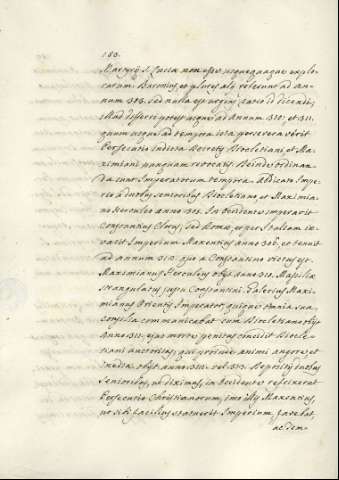 183.
Martyrij S. Luciæ non esse usquequaque explo-
ratum. Baronius, et plures alij referunt ad an-
num 303. sed nulla est urgens ratio id dicendi;
illud differre potest usque ad Annum 310. et 311.
quum usque ad tempora ista perseveraverit
Persecutio indicta Decreto Diocletiani, et Ma-
ximiani nunquam revocato. Deinde ordinan-
da sunt Imperatorum tempora. Abdicato Impe-
rio a duobus senioribus Diocletiano, et Maximia-
no Herculeo anno 305. In Occidente imperavit
Constantius Clorus, sed Romæ, et per Italiam in-
vasit Imperium Maxentius anno 306, et tenuit
ad annum 312. quo a Constantino victus est.
Maximianus Herculeus obijt anno 310. Massiliæ
strangulatus jussu Constantini. Galerius Maxi-
mianus Orientis Imperator, qui omnia sua
consilia communicabat cum Diocletiano obijt
Anno 311. ejus morte penitus concidit Diocle-
tiani auctoritas, qui proinde animi angore, et
inedia obijt anno 312. vel 313. Depositis duobus
Senioribus, ut diximus, in Occidente refrixerat
Persecutio Christianorum, imo illis Maxentius,
ut sibi facilius statueret Imperium, favebat,
ac dem-